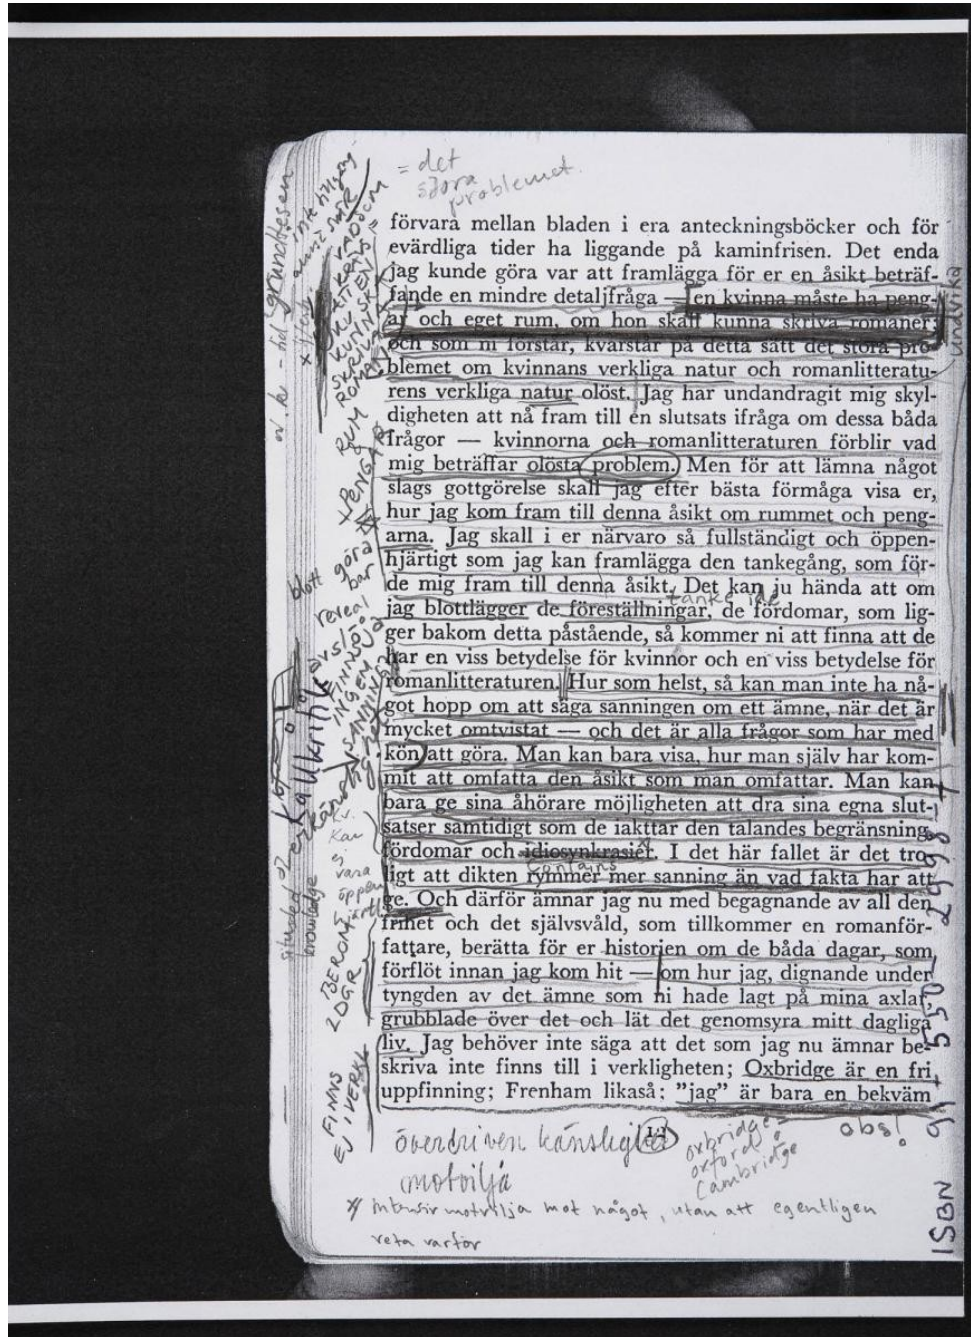 = det
stora
problemet.
förvara mellan bladen i era anteckningsböcker och för
evärdliga tider ha liggande på kaminfrisen. Det enda
jag kunde göra var att framlägga för er en åsikt beträf-
fande en mindre detaljfråga — en kvinna måste ha peng-
ar och eget rum, om hon skall kunna skriva romaner;
och som ni förstår, kvarstår på detta sätt det stora pro-
blemet om kvinnans verkliga natur och romanlitteratu-
rens verkliga natur olöst. Jag har undandragit mig skyl-
digheten att nå fram till en slutsats ifråga om dessa båda
frågor — kvinnorna och romanlitteraturen förblir vad
mig beträffar olösta problem. Men för att lämna något
slags gottgörelse skall jag efter bästa förmåga visa er,
hur jag kom fram till denna åsikt om rummet och peng-
arna. Jag skall i er närvaro så fullständigt och öppen-
hjärtigt som jag kan framlägga den tankegång, som för-
de mig fram till denna åsikt. Det kan ju hända att om
tanke ide
jag blottlägger de föreställningar, de fördomar, som lig-
ger bakom detta påstående, så kommer ni att finna att de
har en viss betydelse för kvinnor och en viss betydelse för
romanlitteraturen. Hur som helst, så kan man inte ha nå-
got hopp om att säga sanningen om ett ämne, när det är
mycket omtvistat — och det är alla frågor som har med
kön att göra. Man kan bara visa, hur man själv har kom-
mit att omfatta den åsikt som man omfattar. Man kan
bara ge sina åhörare möjligheten att dra sina egna slut-
satser samtidigt som de iakttar den talandes begränsning,
fördomar och idiosynkrasier. I det här fallet är det tro-
contains
ligt att dikten rymmer mer sanning än vad fakta har att
ge. Och därför ämnar jag nu med begagnande av all den
frihet och det självsvåld, som tillkommer en romanför-
fattare, berätta för er historien om de båda dagar, som
förflöt innan jag kom hit — om hur jag, dignande under
tyngden av det ämne som ni hade lagt på mina axlar,
grubblade över det och lät det genomsyra mitt dagliga
liv. Jag behöver inte säga att det som jag nu ämnar be-
skriva inte finns till i verkligheten; Oxbridge är en fri
uppfinning; Frenham likaså; ”jag” är bara en bekväm
överdriven känslighet
motvilja
oxbridge =
oxford
Cambridge
obs!
intensiv motvilja mot något, utan att egentligen
veta varför
grundtesen
VAD SOM
KRÄVS
KUNNA
SKRIVA
ROMAN
RUM
+ PENGAR
blott
göra
bar
reveal
FINNS
INGEN
SANNING
kv.
kan
ej
vara
öppen
hjärtl.
situated
knowledge
BEROR
2 DGR
FINNS
EJ I VERKL
undvika
ISBN 91 550 2998 7